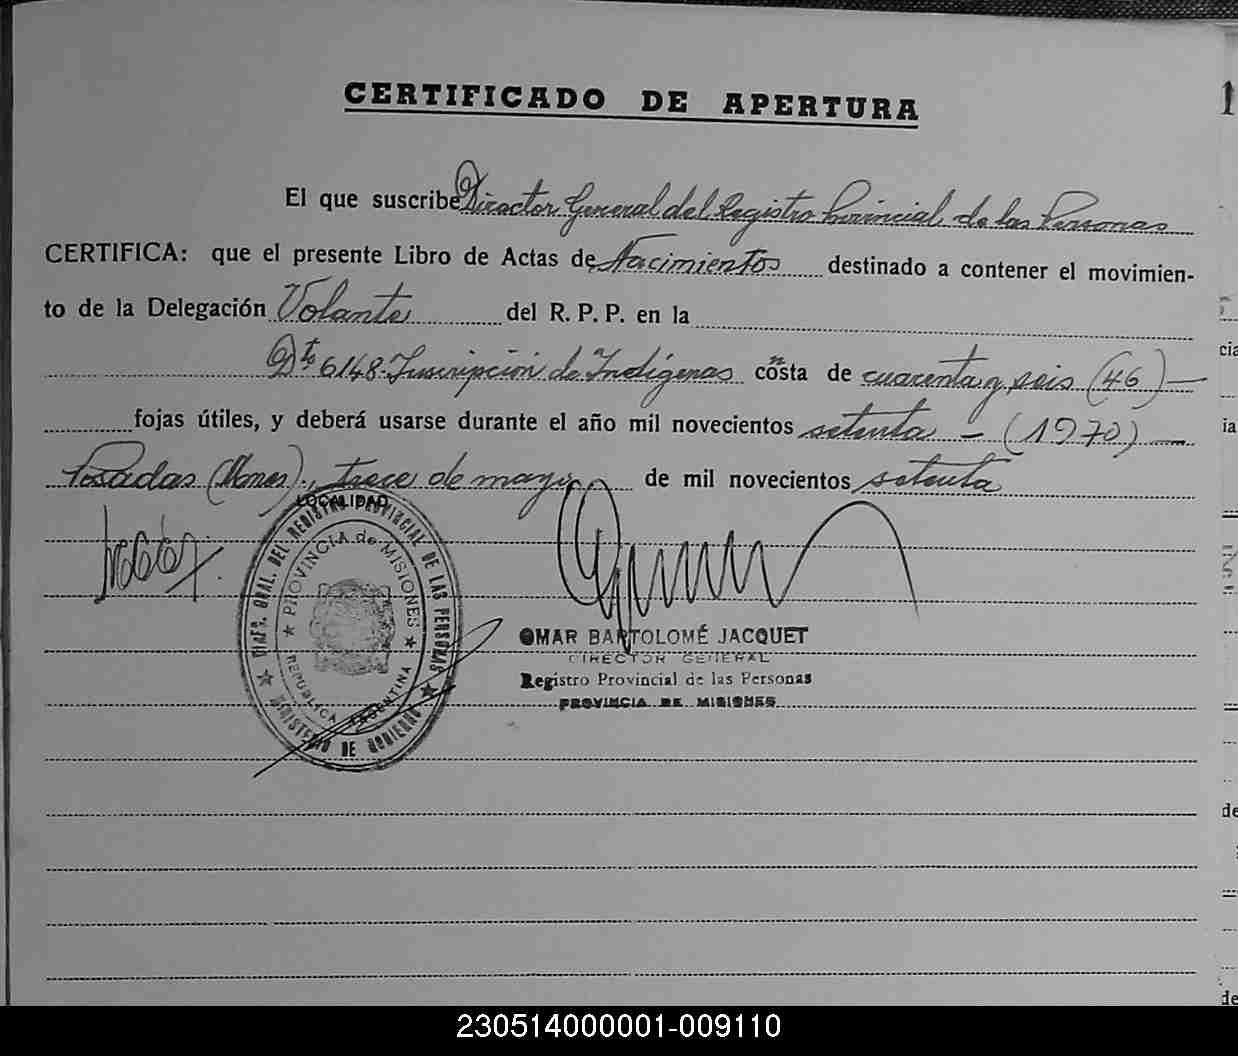 CERTIFICADO DE APERTURA
El que suscribe Director General del Registro Provincial de las Personas
CERTIFICA: que el presente Libro de Actas de Nacimientos destinado a contener el movimien-
to de la Delegación Volante del R. P. P. en la
Dto 6148-Inscripción de Indígenas consta de cuarenta y seis (46) —
fojas útiles, y deberá usarse durante el año mil novecientos setenta — (1970) —
Posadas (Mnes)., trece de mayo de mil novecientos setenta
LOCALIDAD
GRAL. DEL REGISTRO PROVINCIAL DE LAS PERSONAS
PROVINCIA de MISIONES
REPUBLICA ARGENTINA
MINISTERIO DE GOBIERNO
OMAR BARTOLOMÉ JACQUET
DIRECTOR GENERAL
Registro Provincial de las Personas
PROVINCIA DE MISIONES
1
cia
ia
de
de
230514000001-009110